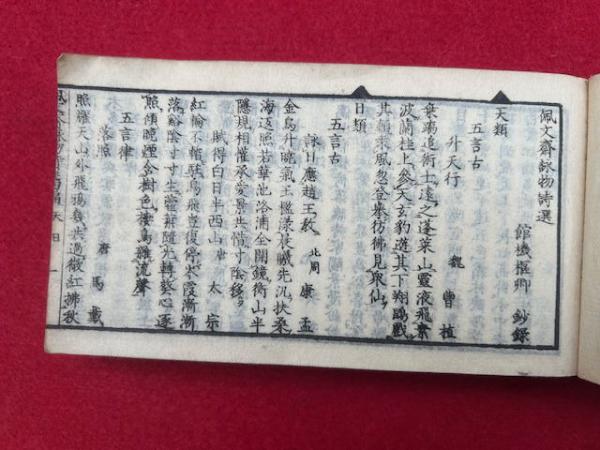 佩文齋詠物詩選
館機樞卿 鈔錄
天類
五言古
升天行 魏 曹植
乘蹻追術士遠之蓬萊山靈液飛素
波蘭桂上參天玄豹遊其下翔鵾戲
其巔乘風忽登舉彷彿見眾仙
日類
五言古
詠日應趙王教 北周 康孟
金烏升曉氣玉檻漾晨曦先汎扶桑
海返照若華池洛浦全開鏡衡山半
隱規相催承愛景共惜寸陰移
賦得白日半西山 唐 太宗
紅輪不暫駐烏飛豈復停岑霞漸漸
落谿陰寸寸生藿葉隨光轉葵心逐
照傾晚煙含樹色棲鳥雜流聲
五言律
落照 唐 馬戴
照耀天山外飛鴉幾共過微紅拂秋
天 日 一